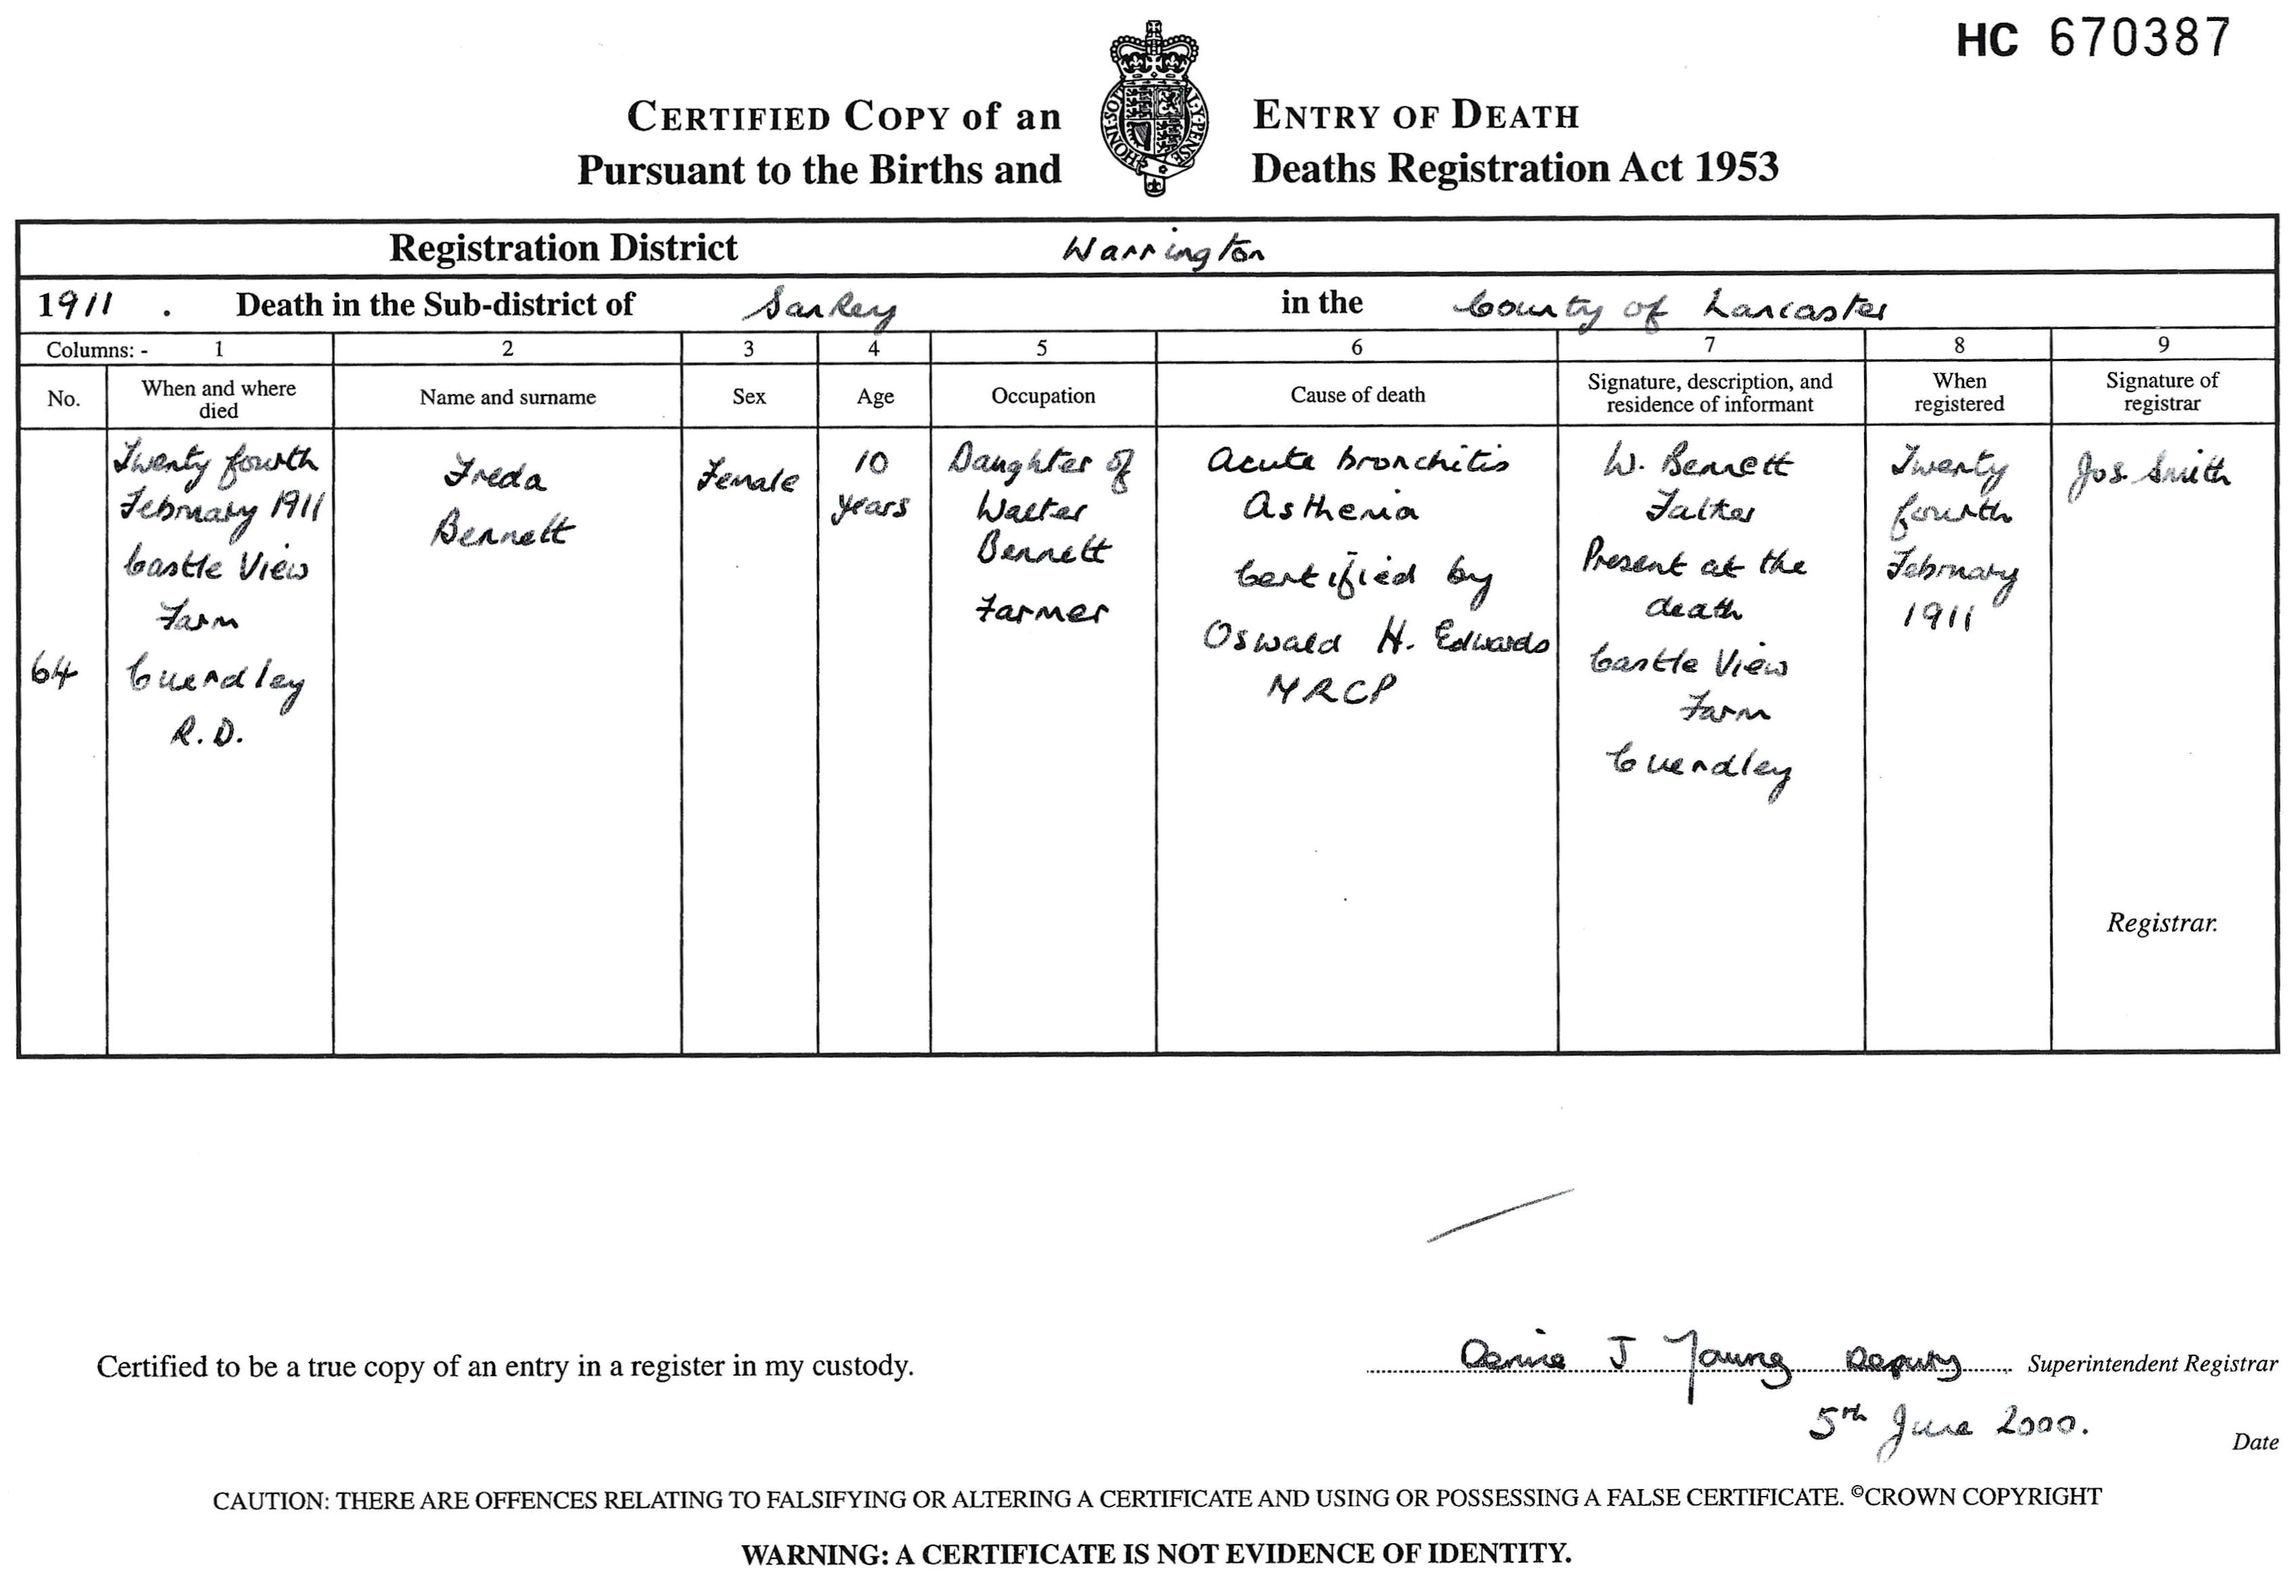 HC 670387
CERTIFIED COPY of an ENTRY OF DEATH
Pursuant to the Births and Deaths Registration Act 1953
HONI·SOI AL·Y·PENSE
Registration District Warrington
1911 . Death in the Sub-district of Sankey in the County of Lancaster
Columns: - 1 2 3 4 5 6 7 8 9
No.
When and where
died
Name and surname
Sex
Age
Occupation
Cause of death
Signature, description, and
residence of informant
When
registered
Signature of
registrar
64
Twenty fourth
February 1911
Castle View
Farm
Cuerdley
R.D.
Freda
Bennett
Female
10
years
Daughter of
Walter
Bennett
Farmer
Acute bronchitis
Asthenia
Certified by
Oswald H. Edwards
MRCP
W. Bennett
Father
Present at the
death
Castle View
Farm
Cuerdley
Twenty
fourth
February
1911
Jos. Smith
Registrar.
Certified to be a true copy of an entry in a register in my custody.
J Young Deputy Superintendent Registrar
5th June 2000.
Date
CAUTION: THERE ARE OFFENCES RELATING TO FALSIFYING OR ALTERING A CERTIFICATE AND USING OR POSSESSING A FALSE CERTIFICATE. ©CROWN COPYRIGHT
WARNING: A CERTIFICATE IS NOT EVIDENCE OF IDENTITY.